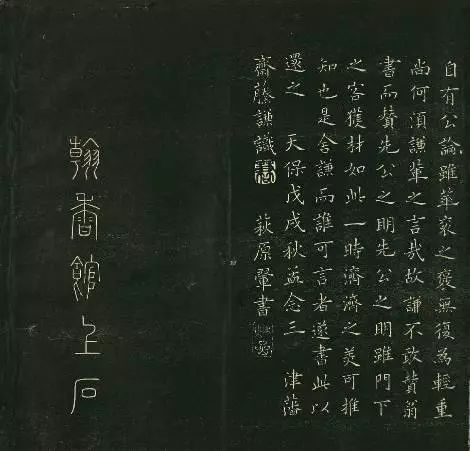 自有公論雖華袞之褒無復為輕重
尚何須謙輩之言哉故謙不敢贊翁
書而贊先公之明先公之明雖門下
之客獲如此一時濟濟之美可推
知也是舍謙而誰可言者遂書此以
還之 天保戊戌秋孟念三 津藩
齋藤謙識 荻原鞏書
翰香館上石